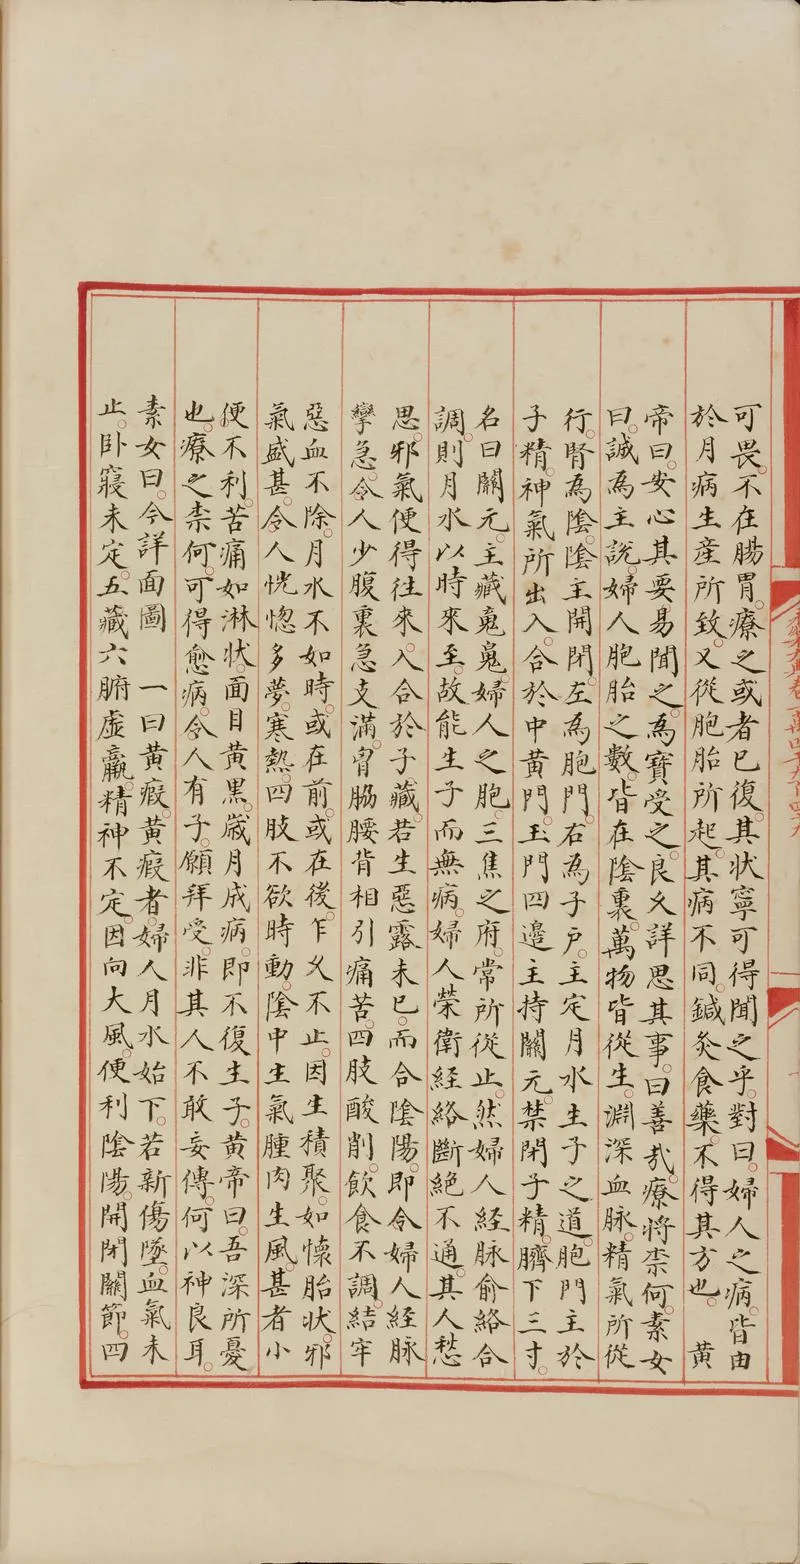 可畏不在腸胃療之或者已復其狀寧可得聞之乎對曰婦人之病皆由
於月病生產所致又從胞胎所起其病不同鍼灸食藥不得其方也 黃
帝曰安心其要易聞之為寶受之良久詳思其事曰善哉療將柰何素女
曰誠為主說婦人胞胎之數皆在陰裏萬物皆從生淵深血脉精氣所從
行腎為陰陰主開閉左為胞門右為子户主定月水生子之道胞門主於
子精神氣所出入合於中黃門玉門四邊主持關元禁閉子精臍下三寸
名曰關元主藏䰟魄婦人之胞三焦之府常所從止然婦人經脉俞絡合
調則月水以時來至故能生子而無病婦人榮衛經絡斷絕不通其人愁
思邪氣便得往來入合於子藏若生惡露未已而合陰陽即令婦人經脉
攣急令人少腹裏急支滿胷脇腰背相引痛苦四肢酸削飲食不調結牢
惡血不除月水不如時或在前或在後乍乆不止因生積聚如懷胎狀邪
氣盛甚令人恍惚多夢寒熱四肢不欲時動陰中生氣腫肉生風甚者小
便不利苦痛如淋狀面目黃黑歲月成病即不復生子黃帝曰吾深所憂
也療之柰何可得愈病令人有子願拜受非其人不敢妄傳何以神良耳
素女曰今詳面圖 一曰黃瘕黃瘕者婦人月水始下若新傷墜血氣未
止卧寢未定五藏六腑虛羸精神不定因向大風便利陰陽開閉關節四